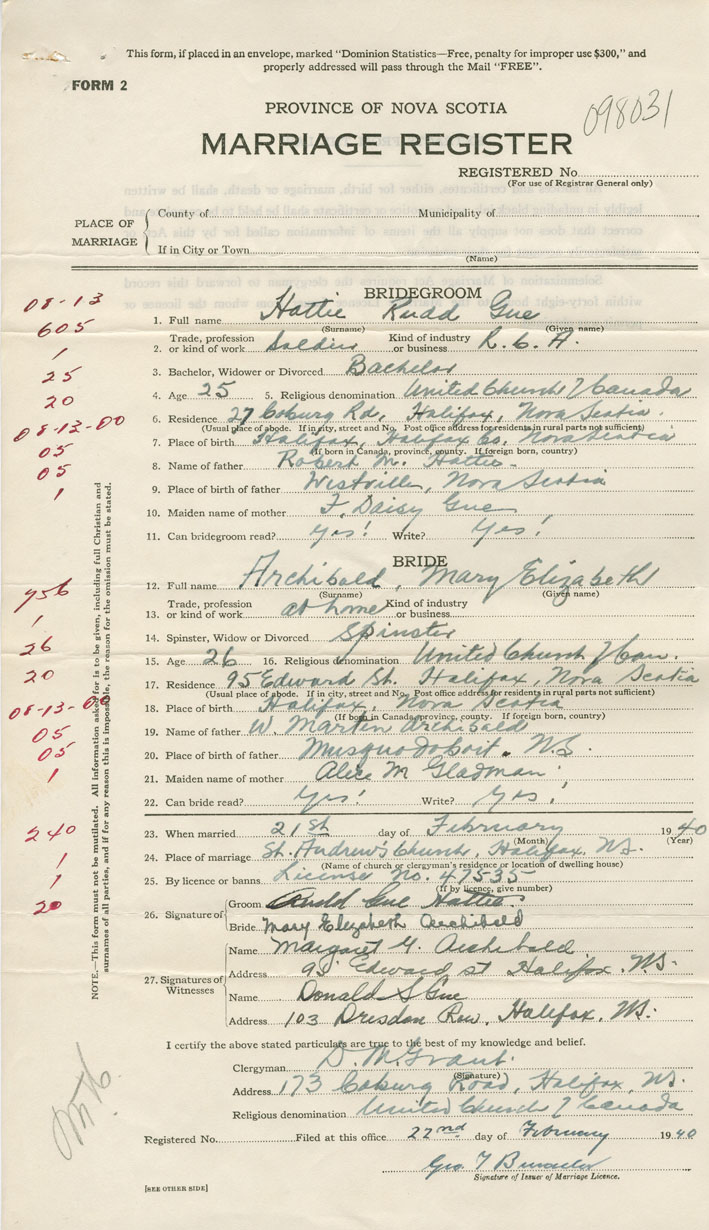 This form, if placed in an envelope, marked "Dominion Statistics—Free, penalty for improper use $300," and
properly addressed will pass through the Mail "FREE".
FORM 2
PROVINCE OF NOVA SCOTIA
098031
MARRIAGE REGISTER
REGISTERED No.
(For use of Registrar General only)
PLACE OF MARRIAGE
County of Municipality of
If in City or Town
(Name)
BRIDEGROOM
08-13
1. Full name Hattie Rudd Gue
(Surname) (Given name)
605
2. Trade, profession or kind of work Soldier Kind of industry or business R. C. A.
1
3. Bachelor, Widower or Divorced Bachelor
25
4. Age 25 5. Religious denomination United Church of Canada
20
6. Residence 27 Coburg Rd, Halifax, Nova Scotia.
(Usual place of abode. If in city, street and No. Post office address for residents in rural parts not sufficient)
08-13-00
7. Place of birth Halifax, Halifax Co. Nova Scotia
(If born in Canada, province, county. If foreign born, country)
05
8. Name of father Robert M. Hattie
05
9. Place of birth of father Westville, Nova Scotia
1
10. Maiden name of mother F. Daisy Gue
11. Can bridegroom read? Yes! Write? Yes!
BRIDE
12. Full name Archibald, Mary Elizabeth
(Surname) (Given name)
956
13. Trade, profession or kind of work at home Kind of industry or business
1
14. Spinster, Widow or Divorced Spinster
26
15. Age 26 16. Religious denomination United Church of Can.
20
17. Residence 95 Edward St. Halifax, Nova Scotia
(Usual place of abode. If in city, street and No. Post office address for residents in rural parts not sufficient)
08-13-00
18. Place of birth Halifax, Nova Scotia
(If born in Canada, province, county. If foreign born, country)
05
19. Name of father W. Martin Archibald
05
20. Place of birth of father Musquodoboit. N.S.
1
21. Maiden name of mother Alice M Gladman
22. Can bride read? Yes! Write? Yes!
240
23. When married 21st day of February 1940
(Month) (Year)
1
24. Place of marriage St. Andrew's Church, Halifax. N.S.
(Name of church or clergyman's residence or location of dwelling house)
1
25. By licence or banns License No. 47535
(If by licence, give number)
20
26. Signature of
Groom Gue Hattie
Bride Mary Elizabeth Archibald
27. Signatures of Witnesses
Name Margaret G. Archibald
Address 95 Edward St Halifax. N.S.
Name Donald S Gue
Address 103 Dresden Row, Halifax. N.S.
I certify the above stated particulars are true to the best of my knowledge and belief.
Clergyman D. M. Grant.
(Signature)
Address 173 Coburg Road, Halifax, N.S.
Religious denomination United Church of Canada
Registered No. Filed at this office 22nd day of February 1940
Signature of Issuer of Marriage Licence.
[SEE OTHER SIDE]
NOTE.—This form must not be mutilated. All information asked for is to be given, including full Christian and
surnames of all parties, and if for any reason this is impossible, the reason for the omission must be stated.